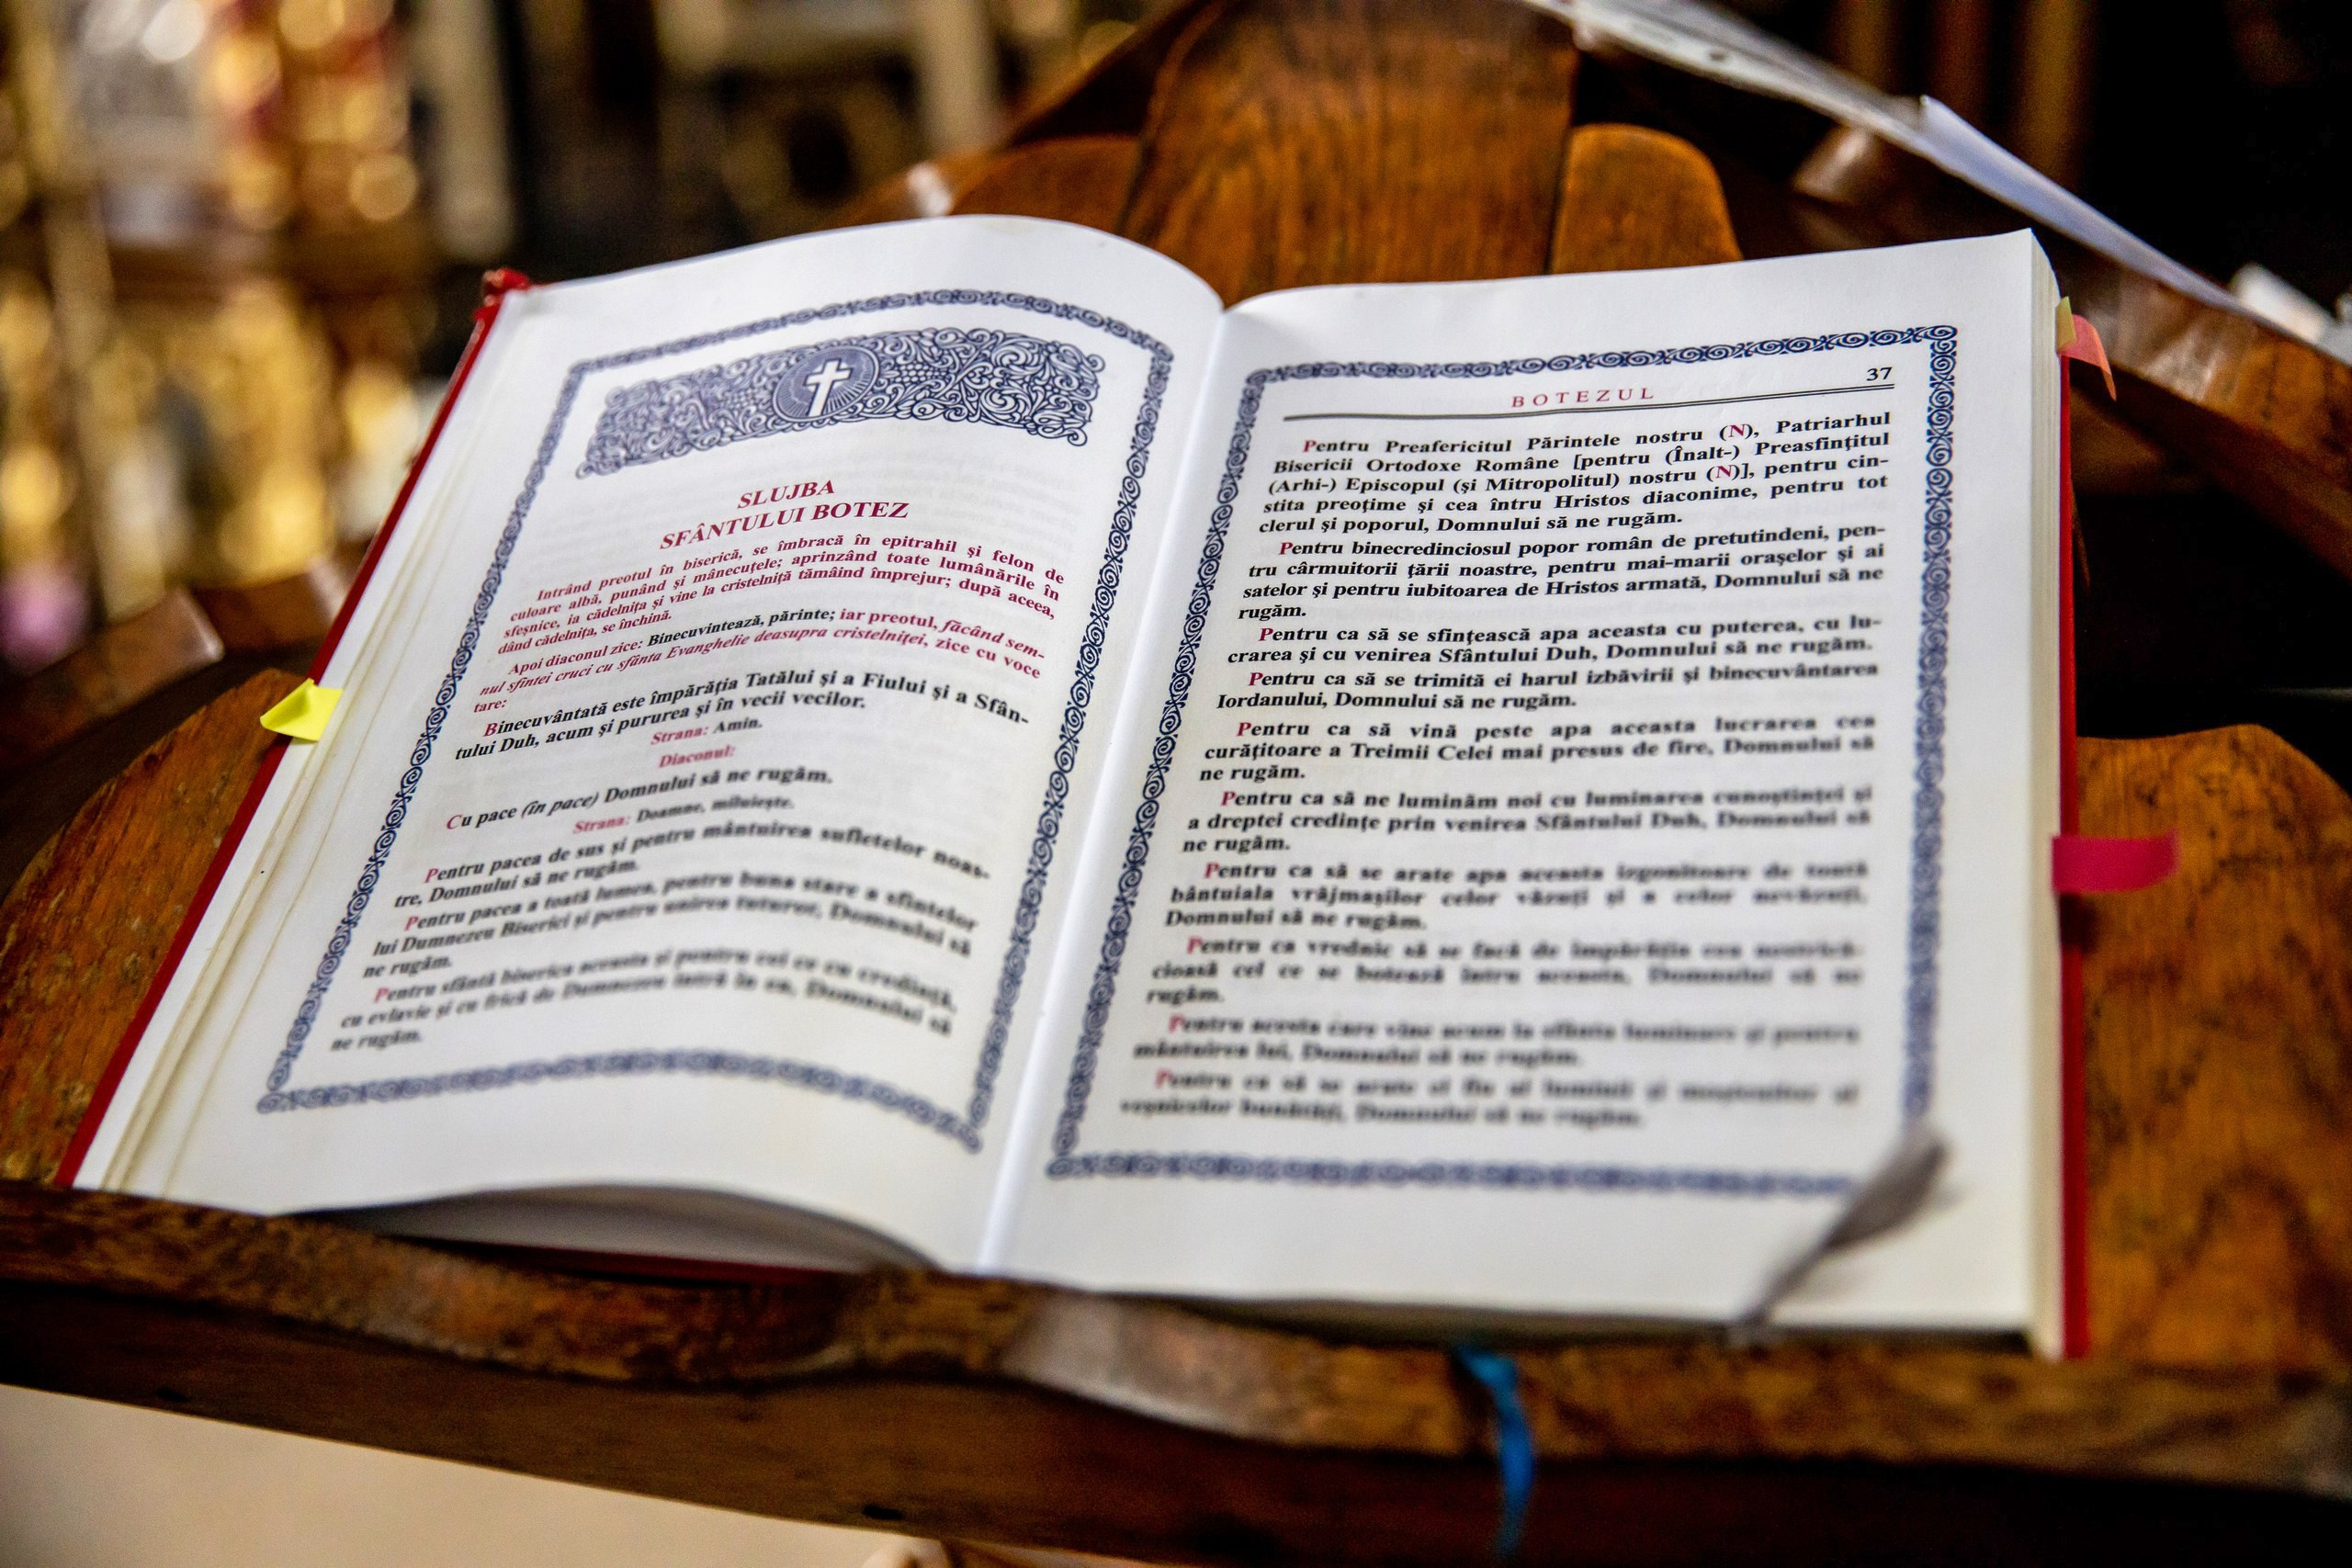 SLUJBA
SFÂNTULUI BOTEZ
Intrând preotul în biserică, se îmbracă în epitrahil şi felon de
culoare albă, punând şi mânecuţele; aprinzând toate lumânările în
sfeşnice, ia cădelniţa şi vine la cristelniţă tămâind împrejur; după aceea,
dând cădelniţa, se închină.
Apoi diaconul zice: Binecuvintează, părinte; iar preotul, făcând sem-
nul sfintei cruci cu sfânta Evanghelie deasupra cristelniţei, zice cu voce
tare:
Binecuvântată este împărăţia Tatălui şi a Fiului şi a Sfân-
tului Duh, acum şi pururea şi în vecii vecilor.
Strana: Amin.
Diaconul:
Cu pace (în pace) Domnului să ne rugăm.
Strana: Doamne, miluieşte.
Pentru pacea de sus şi pentru mântuirea sufletelor noas-
tre, Domnului să ne rugăm.
Pentru pacea a toată lumea, pentru buna stare a sfintelor
lui Dumnezeu Biserici şi pentru unirea tuturor, Domnului să
ne rugăm.
Pentru sfântă biserica aceasta şi pentru cei ce cu credinţă,
cu evlavie şi cu frică de Dumnezeu intră în ea, Domnului să
ne rugăm.
BOTEZUL 37
Pentru Preafericitul Părintele nostru (N), Patriarhul
Bisericii Ortodoxe Române [pentru (Înalt-) Preasfinţitul
(Arhi-) Episcopul (şi Mitropolitul) nostru (N)], pentru cin-
stita preoţime şi cea întru Hristos diaconime, pentru tot
clerul şi poporul, Domnului să ne rugăm.
Pentru binecredinciosul popor român de pretutindeni, pen-
tru cârmuitorii ţării noastre, pentru mai-marii oraşelor şi ai
satelor şi pentru iubitoarea de Hristos armată, Domnului să ne
rugăm.
Pentru ca să se sfinţească apa aceasta cu puterea, cu lu-
crarea şi cu venirea Sfântului Duh, Domnului să ne rugăm.
Pentru ca să se trimită ei harul izbăvirii şi binecuvântarea
Iordanului, Domnului să ne rugăm.
Pentru ca să vină peste apa aceasta lucrarea cea
curăţitoare a Treimii Celei mai presus de fire, Domnului să
ne rugăm.
Pentru ca să ne luminăm noi cu luminarea cunoştinţei şi
a dreptei credinţe prin venirea Sfântului Duh, Domnului să
ne rugăm.
Pentru ca să se arate apa aceasta izgonitoare de toată
bântuiala vrăjmaşilor celor văzuţi şi a celor nevăzuţi,
Domnului să ne rugăm.
Pentru ca vrednic să se facă de împărăţia cea nestrică-
cioasă cel ce se botează întru aceasta, Domnului să ne
rugăm.
Pentru acesta care vine acum la sfânta luminare şi pentru
mântuirea lui, Domnului să ne rugăm.
Pentru ca să se arate el fiu al luminii şi moştenitor al
veşnicelor bunătăţi, Domnului să ne rugăm.